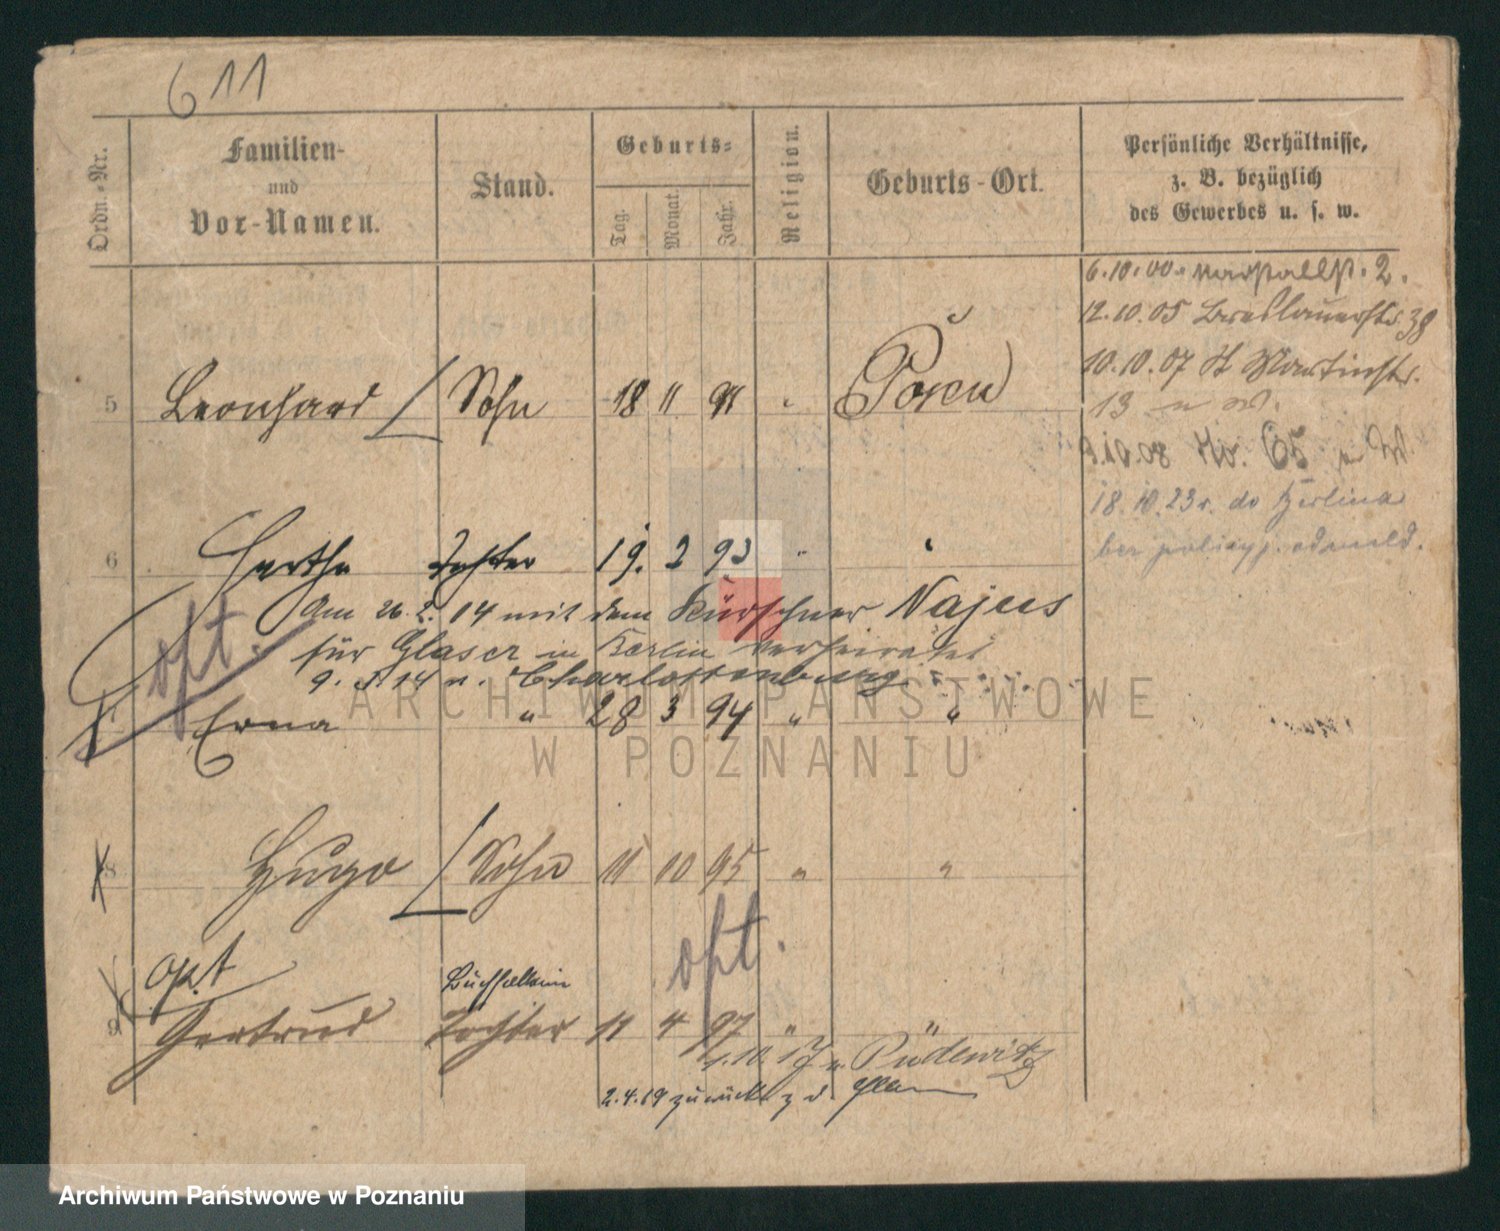 611
Ordn.-Nr.
Familien-
und
Vor-Namen.
Stand.
Geburts-
Tag.
Monat.
Jahr.
Religion.
Geburts-Ort.
Persönliche Verhältnisse,
z. B. bezüglich
des Gewerbes u. s. w.
6.10.00 2.
12.10.05 Breslauerstr. 38
10.10.07 St Martinstr.
13
5 Leonhard Sohn 18 11 " Posen
9.10.08 65
18.10.23 r. do Berlina
bez policyj. odmeld.
6 Hertha Tochter 19. 2 93 " "
Am 26.2.14 mit dem Kürschner Najus
für Glaser in Berlin verheiratet
9. 14 n. Charlottenburg
opt.
Erna " 28 3 94 " "
8 Hugo Sohn 11 10 95 " "
opt.
opt
Buchhalterin
9 Gertrud Tochter 11 4 97 " "
1.10.17 n. Pudewitz
2.4.19 zurück z d
ARCHIWUM PAŃSTWOWE
W POZNANIU
Archiwum Państwowe w Poznaniu